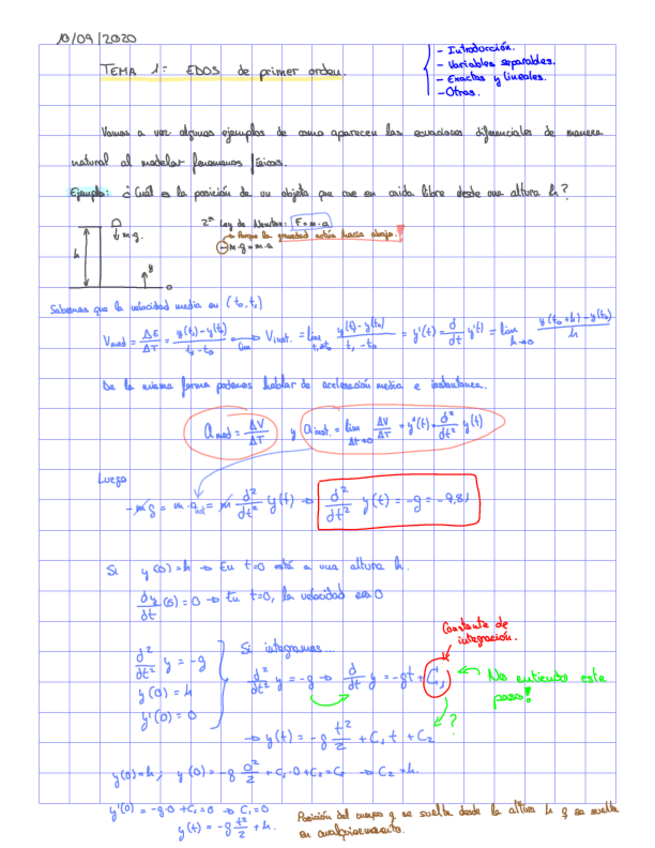 10/09/2020
- Introducción.
- Variables separables.
- Exactas y lineales.
- Otras.
TEMA 1: EDOS de primer orden.
Vamos a ver algunos ejemplos de como aparecen las ecuaciones diferenciales de manera
natural al modelar fenomenos físicos.
Ejemplo: ¿Cuál es la posición de un objeto que cae en caída libre desde una altura h?
2ª Ley de Newton: F=m·a
Porque la gravedad actúa hacia abajo.
-m·g=m·a
↓m·g.
h
↑g
0
Sabemos que la velocidad media en (t₀,t₁)
V_med = ΔE/ΔT = (y(t₁)-y(t₀))/(t₁-t₀) →lim V_inst. = lim t₁→t₀ (y(t)-y(t₀))/(t₁-t₀) = y'(t) = d/dt y(t) = lim h→0 (y(t₀+h)-y(t₀))/h
De la misma forma podemos hablar de aceleración media e instantánea.
a_med = ΔV/ΔT y a_inst. = lim Δt→0 ΔV/ΔT = y''(t) = d²/dt² y(t)
Luego
-mg = m·a_inst = m d²/dt² y(t) → d²/dt² y(t) = -g = -9,81
Si y(0)=h → En t=0 está a una altura h.
dy/dt (0) = 0 → En t=0, la velocidad es 0
Constante de
integración.
d²/dt² y = -g
y(0) = h
y'(0) = 0
Si integramos...
d²/dt² y = -g → d/dt y = -gt + C₁
No entiendo este
paso!
?
→ y(t) = -g t²/2 + C₁t + C₂
y(0)=h; y(0) = -g 0²/2 + C₁·0+C₂ = C₂ → C₂=h.
y'(0) = -g·0 +C₁=0 → C₁=0
y(t) = -g t²/2 + h.
Posición del cuerpo q se suelta desde la altura h q se suelta
en cualquier momento.